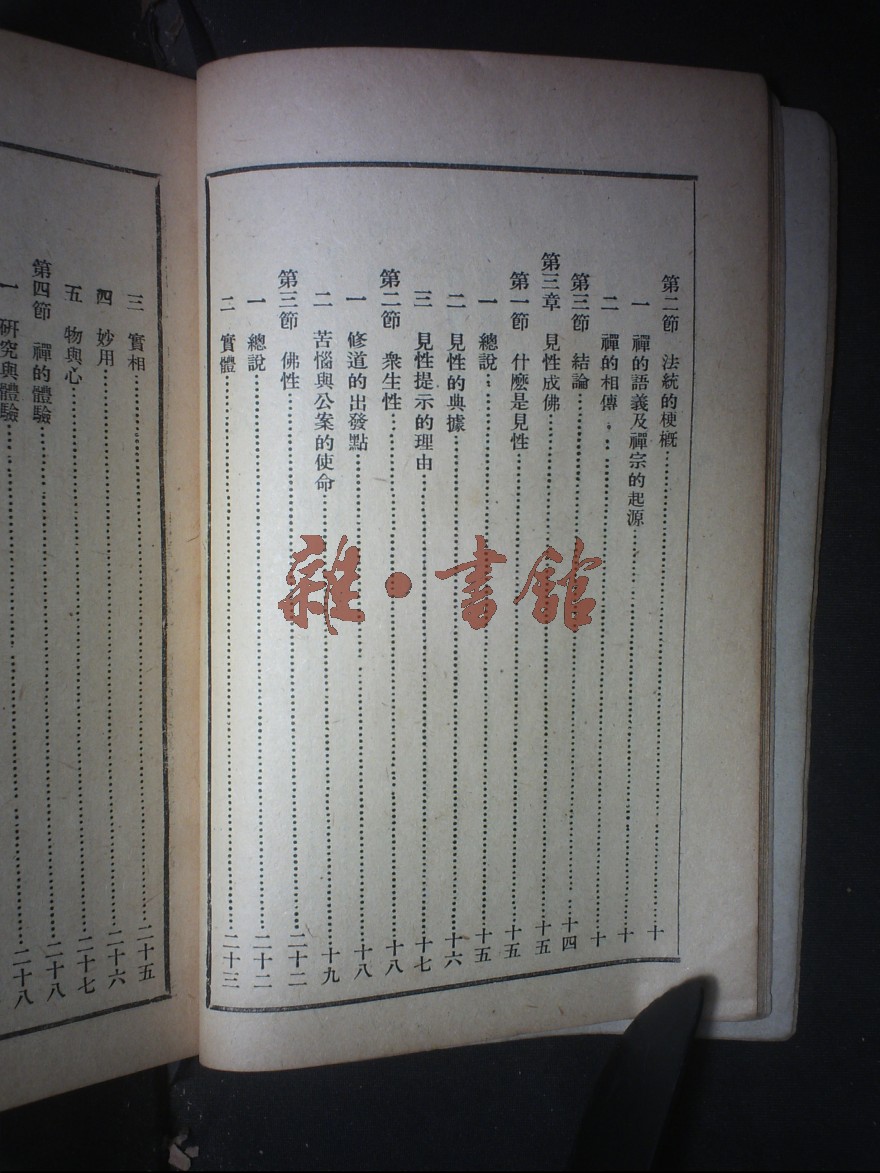 第二節 法統的梗概……十
一 禪的語義及禪宗的起源……十
二 禪的相傳……十
第三節 結論……十四
第三章 見性成佛……十五
第一節 什麽是見性……十五
一 總說……十五
二 見性的典據……十六
三 見性提示的理由……十七
第二節 衆生性……十八
一 修道的出發點……十八
二 苦惱與公案的使命……十九
第三節 佛性……二十二
一 總說……二十二
二 實體……二十三
三 實相……二十五
四 妙用……二十六
五 物與心……二十七
第四節 禪的體驗……二十八
一 研究與體驗……二十八
雜·書館